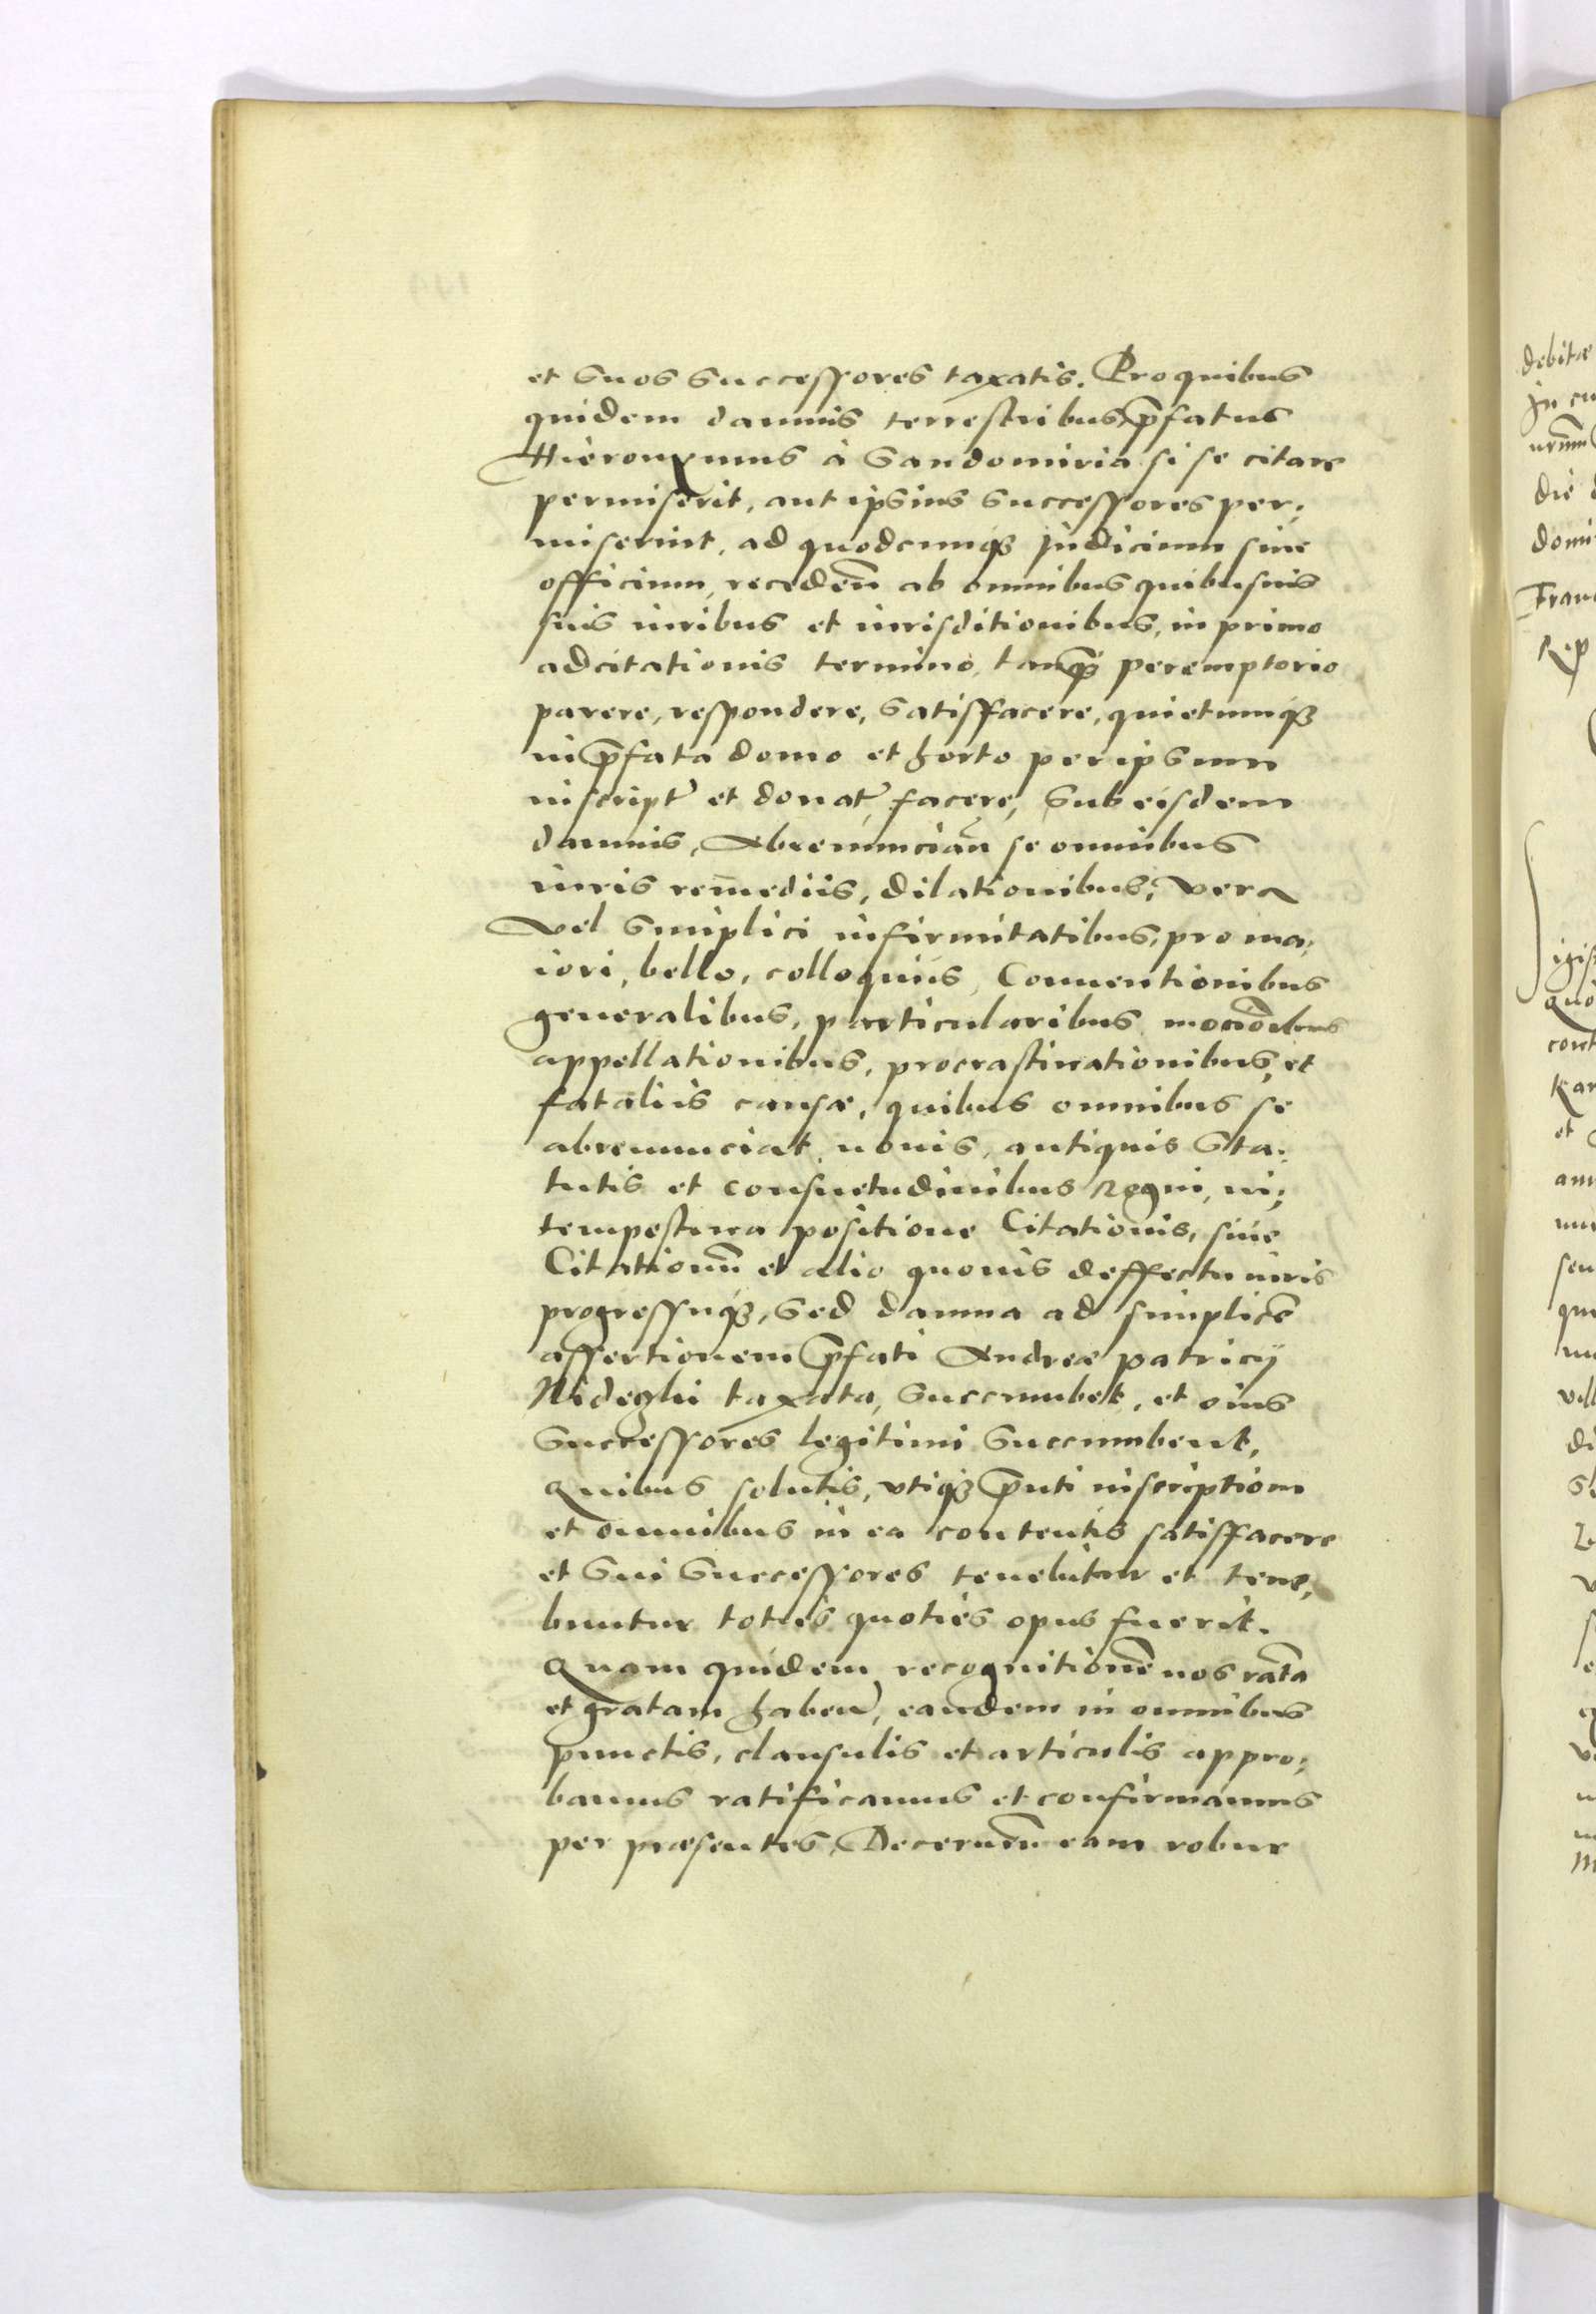 et suos successores taxatis. Pro quibus
quidem damnis terrestribus p̃fatus
Hieronymus à Sandomiria si se citare
permiserit, aut ipsius successores per;
miserint, ad quodcunqꝫ judicium siue
officium, recedeñ ab omnibus quibusuis
suis iuribus et iurisditionibus, in primo
adcitationis termino, tanq̃ peremptorio
parere, respondere, satisffacere, quietumqꝫ
in p̃fata domo et horto per ipsum
inscript̃ et donat̃, facere, sub eisdem
damnis, Abrenunciañ se omnibus
iuris remediis, dilationibus, vera
vel simplici infirmitatibus, pro ma;
iori, bello, colloquiis, Conuentionibus
generalibus, particularibus mociõibus
appellationibus, procrastinationibus, et
fataliis causæ, quibus omnibus se
abrenunciat, nouis, antiquis sta;
tutis et consuetudinibus Regni, in;
tempestiua positione Citationis, siue
Citationũ et alio quouis deffectu iuris
progressuqꝫ, sed damna ad simplicẽ
assertionem p̃fati Andreæ patricij
Nideczki taxata, succumbet, et eius
successores legitimi succumbent,
Quibus solutis, vtiqꝫ p̃nti inscriptioni
et omnibus in ea contentis satisffacere
et sui successores tenebitur et tene;
buntur toties quoties opus fuerit.
Quam quidem recognitionẽ nos ratã
et gratam habeñ, eandem in omnibus
punctis, clausulis et articulis appro;
bamus ratificamus et confirmamus
per præsentes, Decerneñ eam robur
debitæ
In cu
die
domi
Franc
Rep
quo
cont
Kar
et